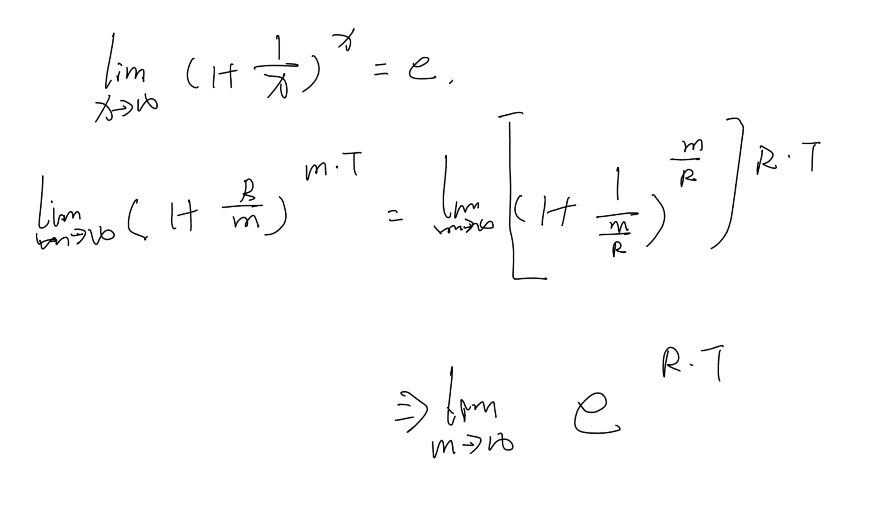 lim x→∞ (1+ 1/x)^x = e.
lim m→∞ (1+ R/m)^(m·T) = lim m→∞ [(1+ 1/(m/R))^(m/R)]^(R·T)
⇒ lim m→∞ e^(R·T)